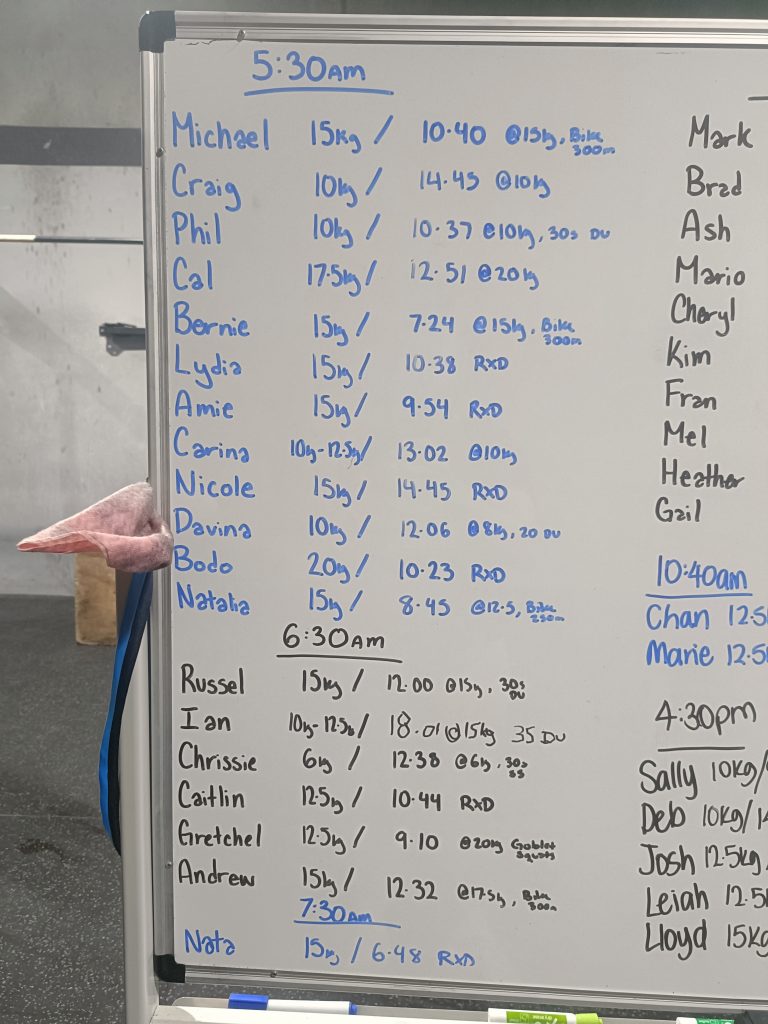 5:30AM
Michael 15kg / 10.40 @15kg, Bike 300m
Craig 10kg / 14.45 @10kg
Phil 10kg / 10.37 @10kg, 30s DU
Cal 17.5kg / 12.51 @20kg
Bernie 15kg / 7.24 @15kg, Bike 300m
Lydia 15kg / 10.38 RXD
Amie 15kg / 9.54 RXD
Carina 10kg-12.5kg / 13.02 @10kg
Nicole 15kg / 14.45 RXD
Davina 10kg / 12.06 @8kg, 20 DU
Bodo 20kg / 10.23 RXD
Natalia 15kg / 8.45 @12.5, Bike 250m
6:30AM
Russel 15kg / 12.00 @15kg, 30s DU
Ian 10kg-12.5kg / 18.01 @15kg 35 DU
Chrissie 6kg / 12.38 @6kg, 30s SS
Caitlin 12.5kg / 10.44 RXD
Gretchel 12.5kg / 9.10 @20kg Goblet Squats
Andrew 15kg / 12.32 @17.5kg, Bike 300m
7:30AM
Nata 15kg / 6.48 RXD
Mark
Brad
Ash
Mario
Cheryl
Kim
Fran
Mel
Heather
Gail
10:40am
Chan 12.5
Marie 12.5
4:30pm
Sally 10kg/
Deb 10kg/1
Josh 12.5kg
Leiah 12.5
Lloyd 15kg